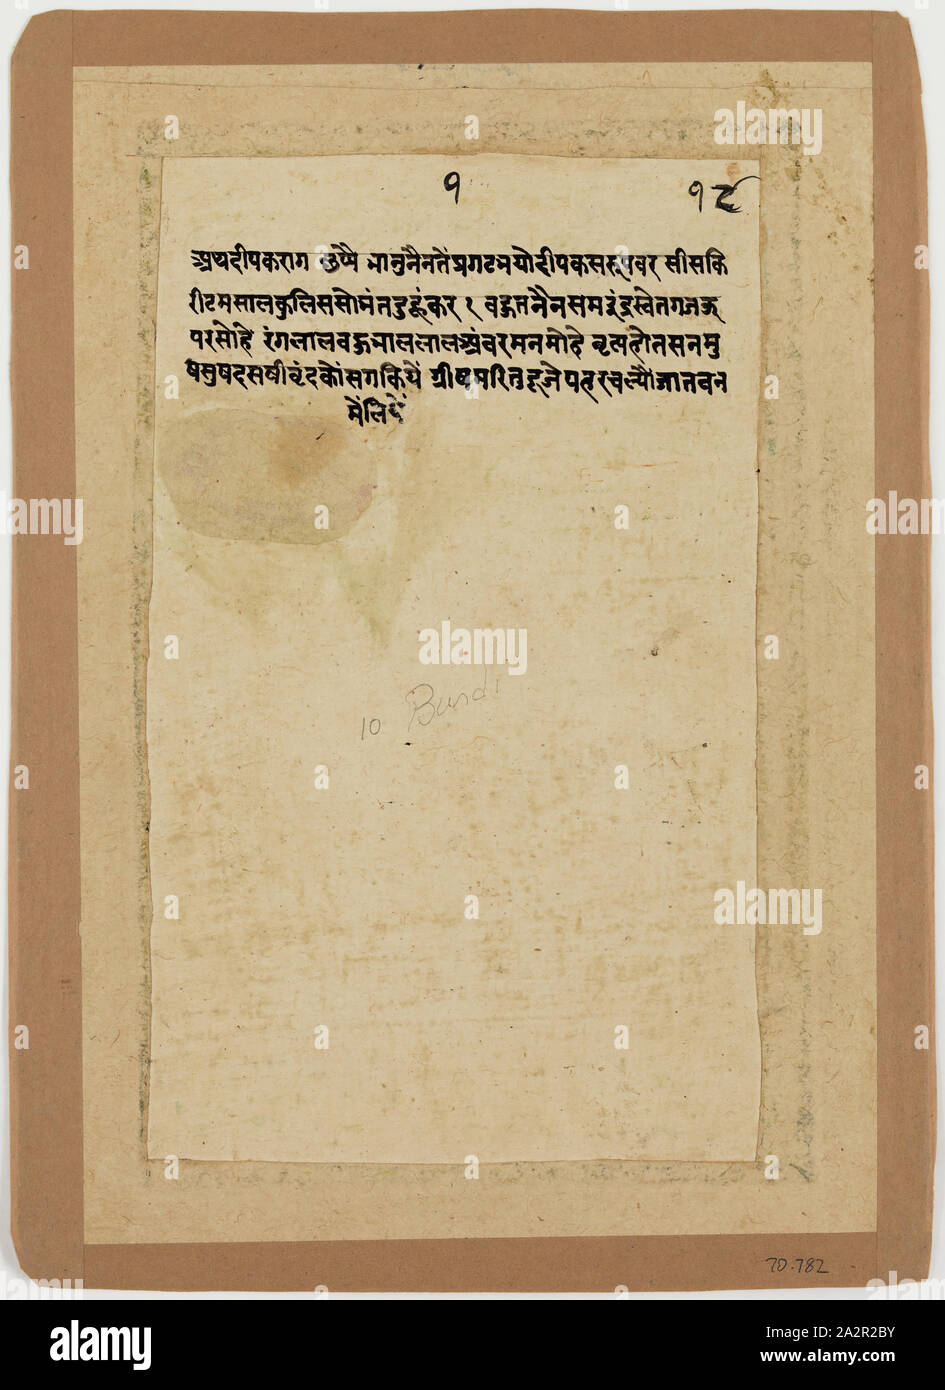 १
१८
अथदीपकराग छप्पै भानुनैनतें प्रगटभयोदीपकसरूपवर सीसकि
रीटमसालकुलिससोमंतदुहूंकर १ वदनतनैनसमरुंड्रस्वेतगजऊ
परसोहे रंगलालवऊमाललालअंबरमनमोहे वृषहोतसनमु
षमुषदसषीवृंदकोंसगकियें ग्रीषमरितु दूजे पहरचल्यौजातवन
मेंलियें
10 Bundi
70.782
alamy
Image ID: 2A2R2BY
www.alamy.com